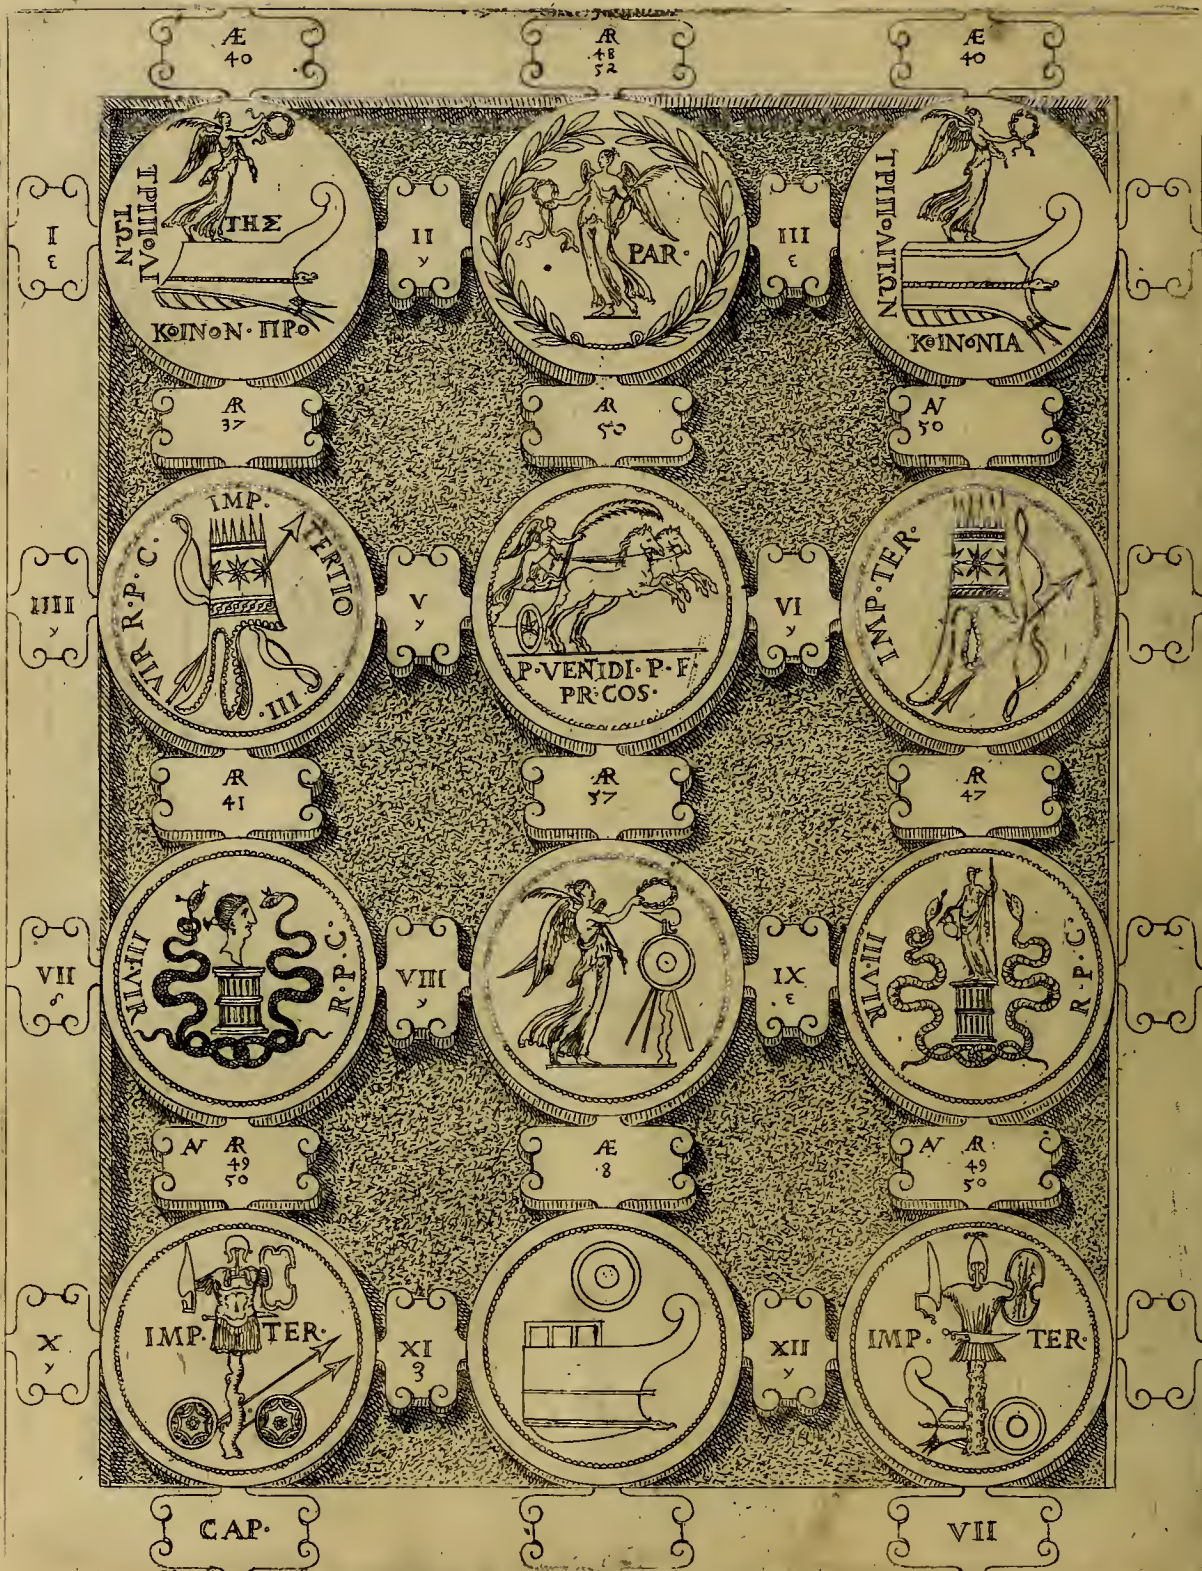 Æ
40
ÆR
48
52
Æ
40
I
ε
ΤΡΙΠΟΛΙ
ΤΩΝ
ΤΗΣ
ΚΟΙΝΟΝ·ΠΡΟ
II
γ
PAR·
III
ε
ΤΡΙΠΟΛΙΤΩΝ
ΚΟΙΝΩΝΙΑ
ÆR
37
ÆR
50
AV
50
IIII
γ
III· VIR R·P·C· IMP· TERTIO
V
γ
P·VENTIDI·P·F
PR·COS·
VI
γ
IMP·TER·
ÆR
41
ÆR
37
ÆR
47
VII
III·VIR
R·P·C·
VIII
γ
IX
ε
III·VIR
R·P·C·
AV ÆR
49
50
Æ
8
AV ÆR
49
50
X
γ
IMP· TER·
XI
3
XII
γ
IMP· TER·
CAP·
VII